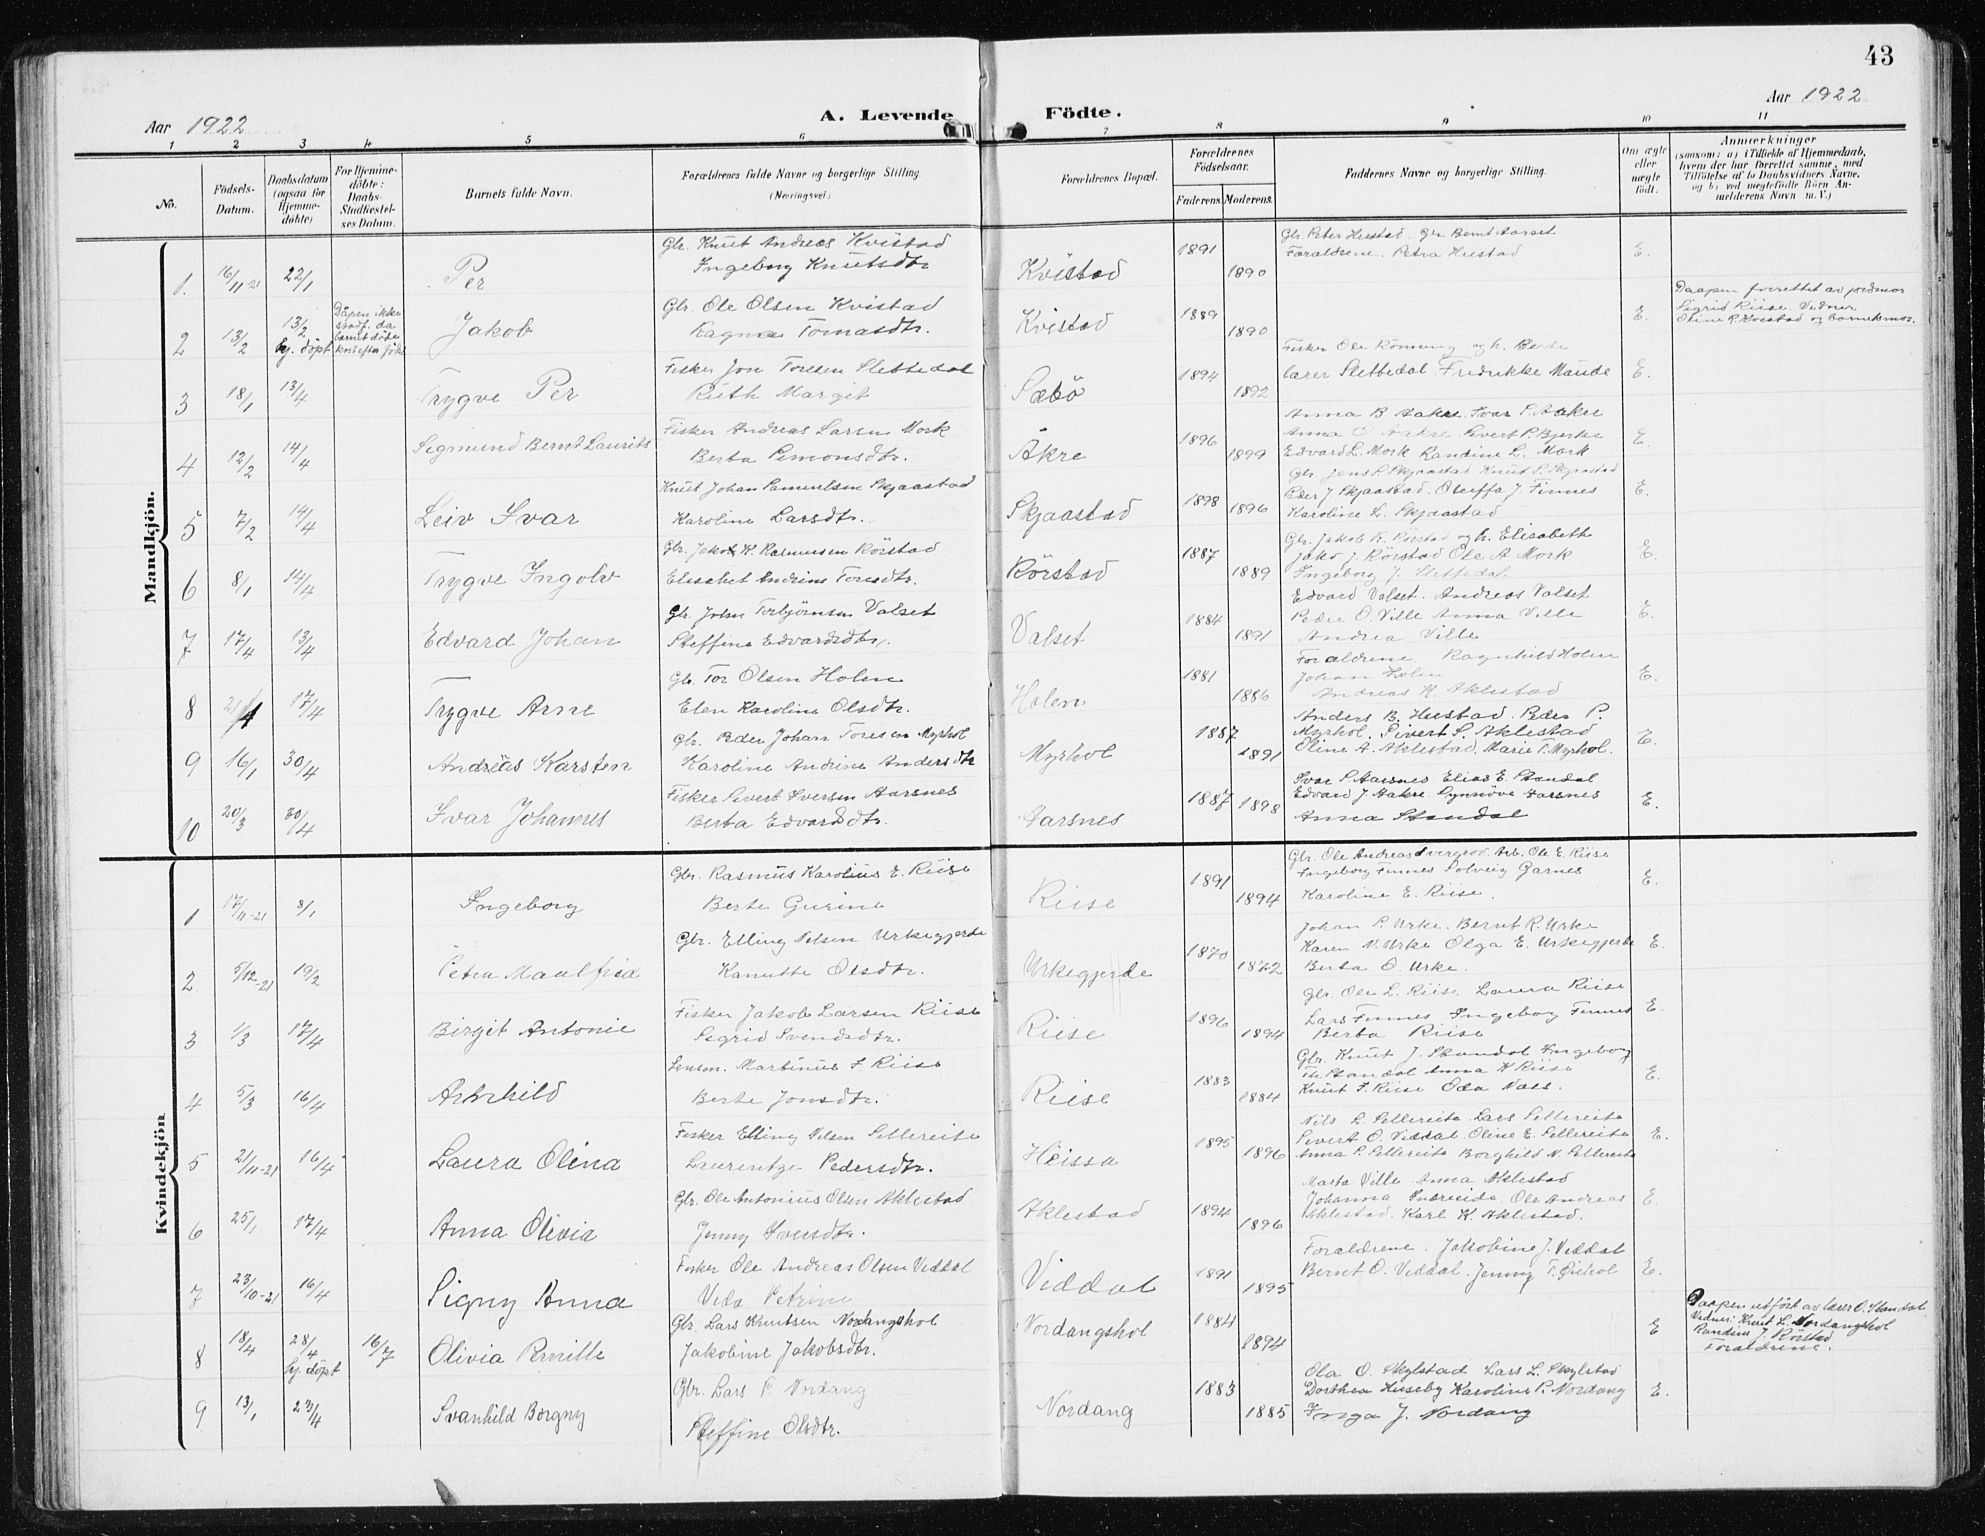 43
Aar 1922
A. Levende
Födte.
Aar 1922
1 2 3 4 5 6 7 8 9 10 11
No.
Födsels-Datum.
Daabsdatum (ogsaa for Hjemme-döbte)
For Hjemme-döbte: Daabs-Stadfæstel-ses Datum.
Barnets fulde Navn.
Forældrenes fulde Navne og borgerlige Stilling. (Næringsvei.)
Forældrenes Bopæl.
Forældrenes Födselsaar.
Faderens. Moderens.
Faddernes Navne og borgerlige Stilling.
Om ægte eller uægte födt.
Anmærkninger
(saasom: a) i Tilfælde af Hjemmedaab, hvem der har forrettet samme, med Tilföielse af to Daabsvidners Navne, og b) ved uægtefödte Börn An-melderens Navn m. V.)
Mandkjön.
1. 16/11-21 22/1 Per
Gbr. Knut Andreas Kvistad
Ingeborg Knutsdtr
Kvistad 1891 1890
Gbr. Peter Hustad. Gbr. Bernt Aarset
Foraldrene. Petra Hustad
E.
2 13/2 13/2 Hj. döpt
Dåpen ikke stadf. da barnet döde kort efter
Jakob
Gbr. Ole Olsen Kvistad
Ragna Tomasdtr.
Kvistad 1889 1890
E.
Daapen forrettet av jordmor
Sigrid Riise. Vidner
Oline R. Kvistad og barnets mor.
3 18/1 13/4 Trygve Per
Fisker Jon Toresen Slettedal
Ruth Margit
Sæbö 1894 1892
Fisker Ole Rönning og h. Berte
lærer Slettedal Fredrikke Maude
E.
4 12/2 14/4 Sigmund Bernt Laurits
Fisker Andreas Larsen Mork
Berta Simonsdtr.
Åkre 1896 1899
Anna B Aakre. Ivar S. Aakre
Anna O Aakre. Sivert P. Bjerke
Edvard L. Mork Randine L. Mork
E.
5 7/2 14/4 Leiv Ivar
Knut Johan Samuelsen Skjaastad
Karoline Larsdtr.
Skjaastad 1898 1896
Gbr. Jens S. Skjaastad Knut S. Skjaastad
Peder J. Skjaastad. Oluffa J. Finnes
Karoline L. Skjaastad
E.
6 8/1 14/4 Trygve Ingolv
Gbr. Jakob K. Rasmussen Rörstad
Elisabet Andrine Toresdtr.
Rörstad 1887 1889
Gbr. Jakob R. Rörstad og h. Elisabeth
Jakob J. Rörstad Ole A Mork
Ingeborg J. Slettedal.
E.
7 17/4 13/4 Edvard Johan
Gbr. Johan Torbjörnsen Valset
Steffine Edvardsdtr.
Valset 1884 1891
Edvard Valset. Andreas Valset
Peder O. Ville Anna Ville
Andrea Ville
E.
8 21/1 17/4 Trygve Arne
Gbr. Tor Olsen Holen
Elen Karoline Olsdtr.
Holen 1881 1886
Foraldrene Ragnhild Holen
Johan Holen
Andreas K. Aklestad
E.
9 16/1 30/4 Andreas Karsten
Gbr. Peder Johan Toresen Myrhol
Karoline Andrine Andersdtr
Myrhol 1887 1891
Anders B. Hustad. Peder P.
Myrhol. Sivert S. Aklestad
Oline A. Aklestad. Marie T. Myrhol.
E.
10 20/3 30/4 Ivar Johannes
Fisker Sivert Iversen Aarsnes
Berta Edvardsdtr.
Aarsnes 1887 1898
Ivar S. Aarsnes Elias E. Standal
Edvard J. Aakre Synnöve Aarsnes
Anna Standal
E.
Kvindekjön
1 17/11-21 8/1 Ingeborg
Gbr. Rasmus Karolius E. Riise
Berte Gurine
Riise 1891 1894
Gbr. Ole Andreas Overgod. Arb. Ole E. Riise
Ingeborg Finnes Solveig Garnes
Karoline E. Riise.
E.
2 5/12-21 19/2 Petra Maalfrid
Gbr. Elling Nilsen Urkegjerde
Kanutte Olsdtr.
Urkegjerde 1870 1872
Johan P. Urke. Bernt R. Urke
Karen N. Urke Olga E. Urkegjerde
Berta O. Urke.
E.
3 1/3 17/4 Birgit Antonie
Fisker Jakob Larsen Riise
Sigrid Svendsdtr.
Riise 1896 1894
Gbr. Ole L. Riise. Laura Riise
Lars Finnes Ingeborg Finnes
Berta Riise
E.
4 5/3 16/4 Arnhild
Martinus I Riise
Berte Jonsdtr.
Riise 1883 1884
Gbr. Knut J. Standal Ingeborg
Th. Standal Anna K Riise
Knut I. Riise Oda Næs.
E.
5 21/11-21 16/4 Laura Olina
Fisker Elling Nilsen Sellereite
Laurentze Pedersdtr.
Heissa 1895 1896
Nils L. Sellereite Lars Sellereite
Sivert O. Viddal. Oline E. Sellereite
Anna P. Sellereite Borghild N. Sellereite
E.
6 25/1 17/4 Anna Olivia
Gbr. Ole Antonius Olsen Aklestad
Jenny Iversdtr.
Aklestad 1894 1896
Marta Ville Anna Aklestad
Johanna Ole Andreas
Aklestad. Karl K. Aklestad.
E.
7 23/10-21 16/4 Signy Anna
Fisker Ole Andreas Olsen Viddal
Vida Petrine
Viddal 1891 1895
Foraldrene. Jakobine J. Viddal
Bernt O. Viddal. Jenny T. Öiehol
E.
8 18/4 28/4 Hj. döpt 16/7 Olivia Pernille
Gbr. Lars Knutsen Nordangshol
Jakobine Jakobsdtr.
Nordangshol 1884 1894
E
Daapen utfört av lærer O. Standal
Vidner: Knut L. Nordangshol
Randine J. Rörstad
Foraldrene.
9 13/1 23/4 Svanhild Borgny
Gbr. Lars P. Nordang
Steffine Olsdtr.
Nordang 1883 1885
Ola O. Skylstad Lars L. Skylstad
Dorthea Huseby Karoline P. Nordang
Inga J. Nordang
E.